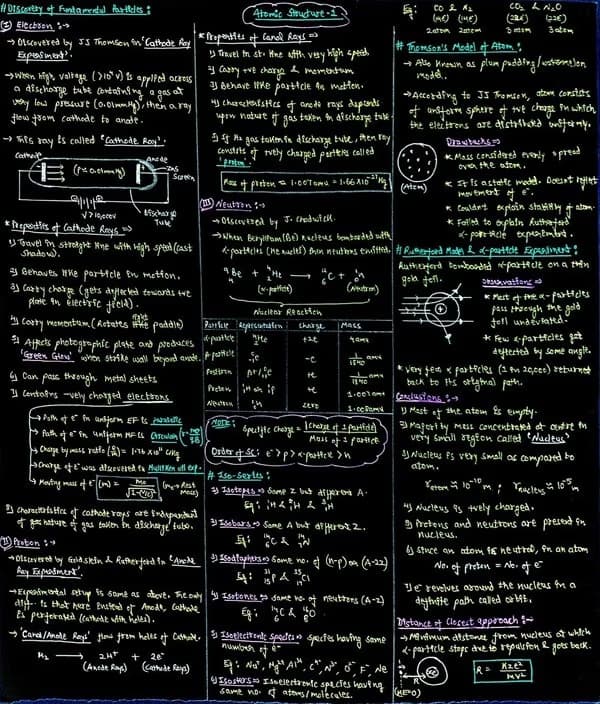 # Discovery of Fundamental Particles :
(I) Electron :→
→ Discovered by JJ Thomson in 'Cathode Ray
Experiment'.
→ When high voltage (>10⁴V) is applied across
a discharge tube containing a gas at
very low pressure (0.01mmHg), then a ray
flow from cathode to anode.
→ This ray is called 'Cathode Ray'.
Cathode
Anode
(P ≈ 0.01mmHg)
ZnS
Screen
V > 10,000V
Discharge
Tube
* Properties of Cathode Rays ⇒
1) Travel in straight line with high speed (cast
shadow).
2) Behaves like particle in motion.
3) Carry charge (gets deflected towards +ve
plate in electric field).
4) Carry momentum (Rotates light paddle)
5) Affects photographic plate and produces
'Green Glow' when strike wall beyond anode.
6) Can pass through metal sheets
7) Contains -vely charged electrons
→ Path of e⁻ in uniform EF is parabolic
→ Path of e⁻ in uniform MF is Circular
→ Charge by mass ratio (e/m) = 1.76 × 10¹¹ C/Kg
→ Charge of e⁻ was discovered in Mullikan oil exp.
→ Moving mass of e⁻ (m) = m₀/√1-(v/c)² (m₀→Rest
Mass)
8) Characteristics of cathode rays are independent
of nature of gas taken in discharge tube.
(II) Proton :→
→ Discovered by Goldstein & Rutherford in 'Anode
Ray Experiment'.
→ Experimental setup is same as above. The only
diff. is that here instead of Anode, Cathode
is perforated (cathode with holes).
→ 'Canal/Anode Rays' flow from holes of Cathode.
H₂ → 2H⁺ + 2e⁻
(Anode Rays) (Cathode Rays)
Atomic Structure-1
* Properties of Canal Rays ⇒
1) Travel in st. line with very high speed.
2) Carry +ve charge & momentum
3) Behave like particle in motion.
4) Characteristics of anode rays depends
upon nature of gas taken in discharge tube.
5) If H₂ gas taken in discharge tube, then ray
consists of +vely charged particles called
'proton'.
Mass of proton = 1.007amu = 1.66×10⁻²⁷Kg
(III) Neutron :→
→ Discovered by J. Chadwick.
→ When Beryllium(Be) nucleus bombarded with
α-particles (He nuclei) then neutrons emitted.
⁹₄Be + ⁴₂He → ¹²₆C + ¹₀n
(α-particle) (Neutron)
Nuclear Reaction
Particle Representation Charge Mass
α-particle ⁴₂He +2e 4amu
β-particle -e 1/1840 amu
Positron +e 1/1840 amu
Proton +e 1.007amu
Neutron zero 1.008amu
Note:
Specific charge = |charge of 1 particle| / Mass of 1 particle
Order of SC: e⁻ > p > α-particle > n
# Iso-Series :
1) Isotopes ⇒ Same Z but different A.
Eg: ¹₁H & ²₁H & ³₁H
2) Isobars ⇒ Same A but different Z.
Eg: ¹⁴₆C & ¹⁴₇N
3) Isodiaphers ⇒ Same no. of (n-p) or (A-2Z)
Eg: ³¹₁₅P & ³⁵₁₇Cl
4) Isotones ⇒ same no. of neutrons (A-Z)
Eg: ¹⁴₆C & ¹⁶₈O
5) Isoelectronic Species ⇒ Species having same
number of e⁻
Eg: Na⁺, Mg²⁺, Al³⁺, C⁴⁻, N³⁻, O²⁻, F⁻, Ne
6) Isosters ⇒ Isoelectronic species having
same no. of atoms/molecules.
Eg: CO & N₂
(14e⁻) (14e⁻)
2atom 2atom
CO₂ & N₂O
(22e⁻) (22e⁻)
3 atom 3 atom
# Thomson's Model of Atom :
→ Also known as plum pudding/watermelon
model.
→ According to JJ Thomson, atom consists
of uniform sphere of +ve charge in which
the electrons are distributed uniformly.
(Atom)
Drawbacks→
* Mass considered evenly spread
over the atom.
* It is a static model. Doesn't reflect
movement of e⁻.
* Couldn't explain stability of atom.
* Failed to explain Rutherford
α-particle experiment.
# Rutherford Model & α-particle Experiment :
Rutherford bombarded α-particle on a thin
gold foil.
Observations ⇒
* Most of the α-particles
pass through the gold
foil undeviated.
* Few α-particles got
deflected by some angle.
* Very few α particles (1 in 20,000) returned
back to its original path.
Conclusions :→
1) Most of the atom is empty.
2) Majority mass concentrated at centre in
very small region called 'Nucleus'
3) Nucleus is very small as compared to
atom.
r_atom ≈ 10⁻¹⁰m ; r_nucleus ≈ 10⁻¹⁵m
4) Nucleus is +vely charged.
5) Protons and neutrons are present in
nucleus.
6) Since an atom is neutral, in an atom
No. of proton = No. of e⁻
7) e⁻ revolves around the nucleus in a
definite path called orbit.
Distance of Closest approach :→
→ Minimum distance from nucleus at which
α-particle stops due to repulsion & goes back.
R
(KE=0)
R = 4KZe²/mv²